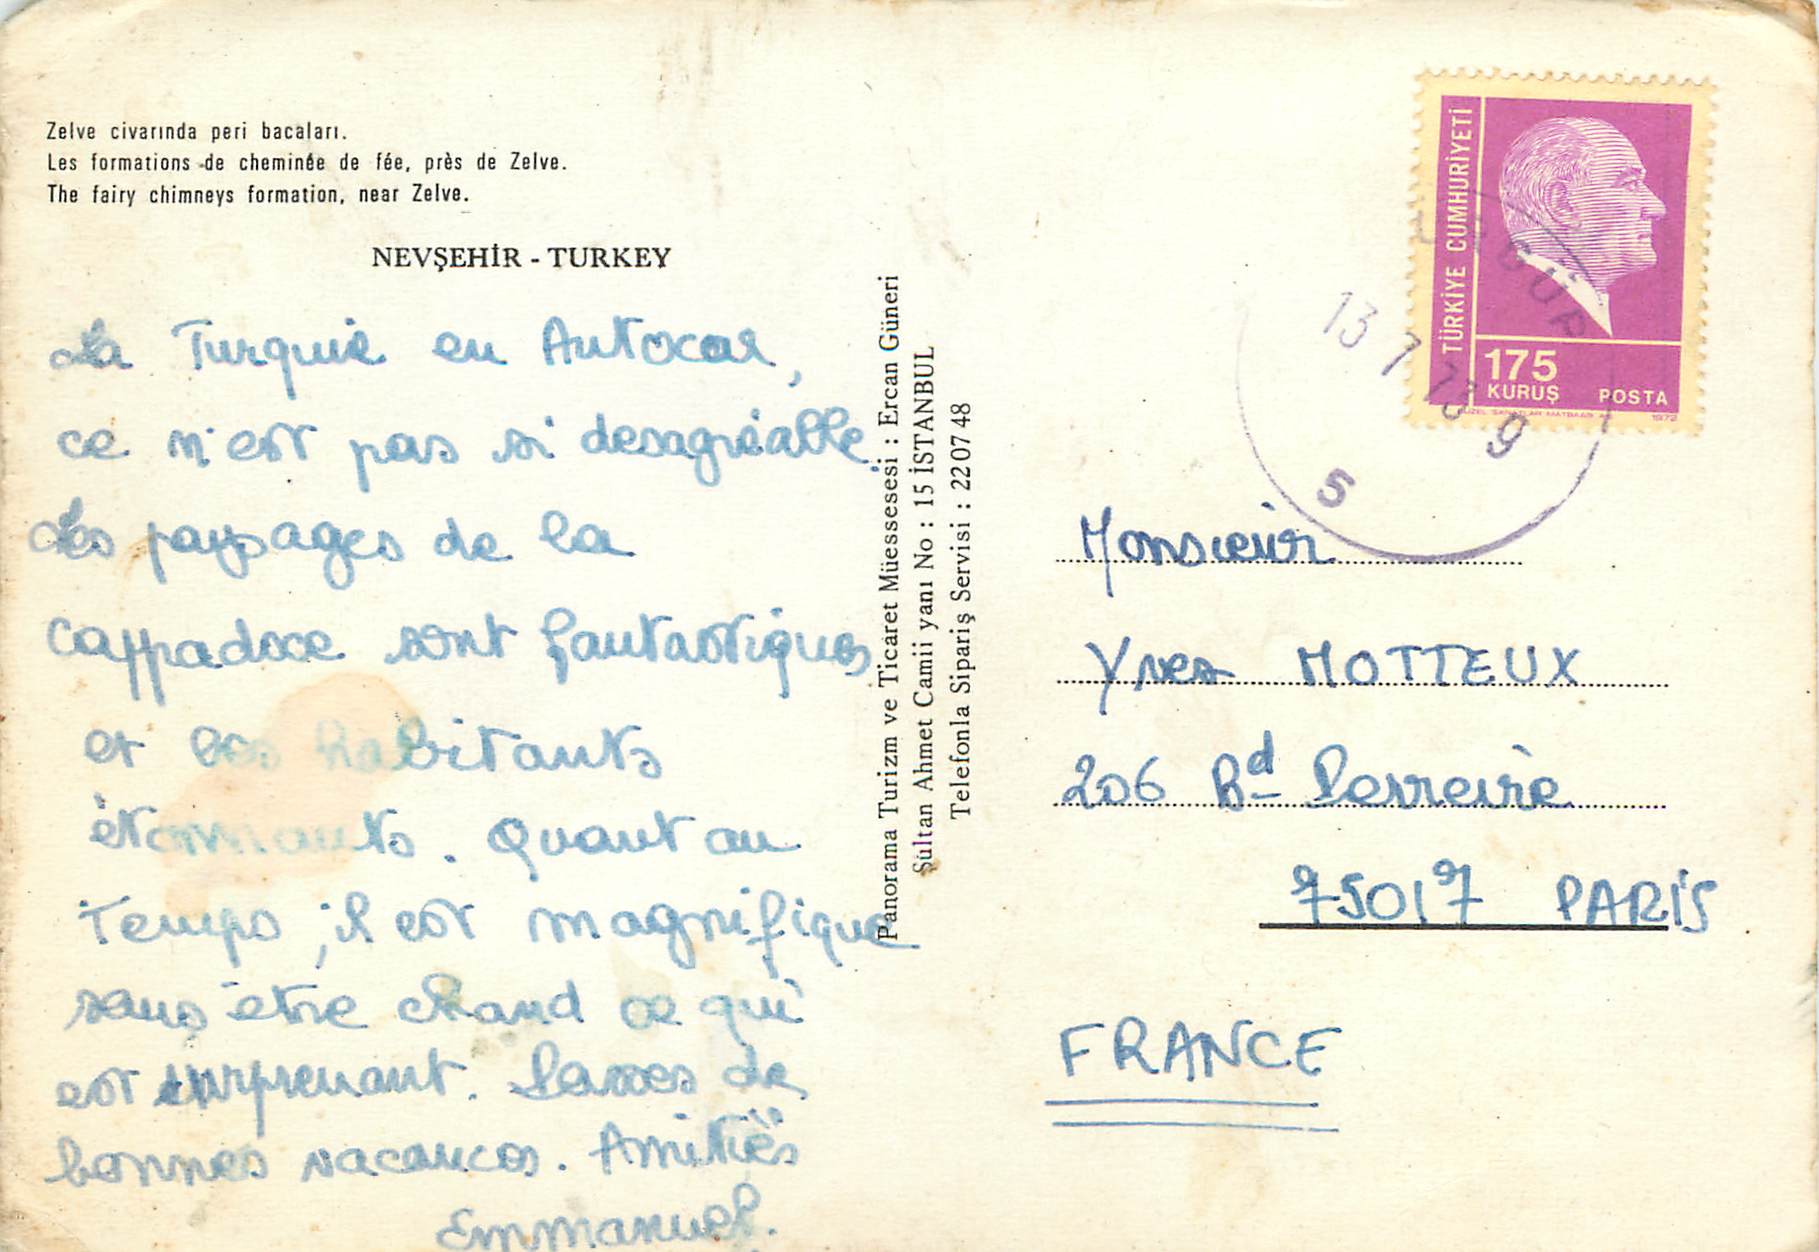 Zelve civarında peri bacaları.
Les formations de cheminée de fée, près de Zelve.
The fairy chimneys formation, near Zelve.
NEVŞEHİR - TURKEY
La Turquie en Autocar,
ce n'est pas si desagréable.
Les paysages de la
Cappadoce sont fantastiques
et les habitants
étonnants. Quant au
Temps, il est magnifique
sans être chaud ce qui
est surprenant. Passes de
bonnes vacances. Amitiés
Emmanuel.
Panorama Turizm ve Ticaret Müessesesi : Ercan Güneri
Sultan Ahmet Camii yanı No : 15 İSTANBUL
Telefonla Sipariş Servisi : 22 07 48
TÜRKİYE CUMHURİYETİ
175
KURUŞ POSTA
1972
13 7
9
5
Monsieur
Yves MOTTEUX
206 Bd Perreire
75017 PARIS
FRANCE